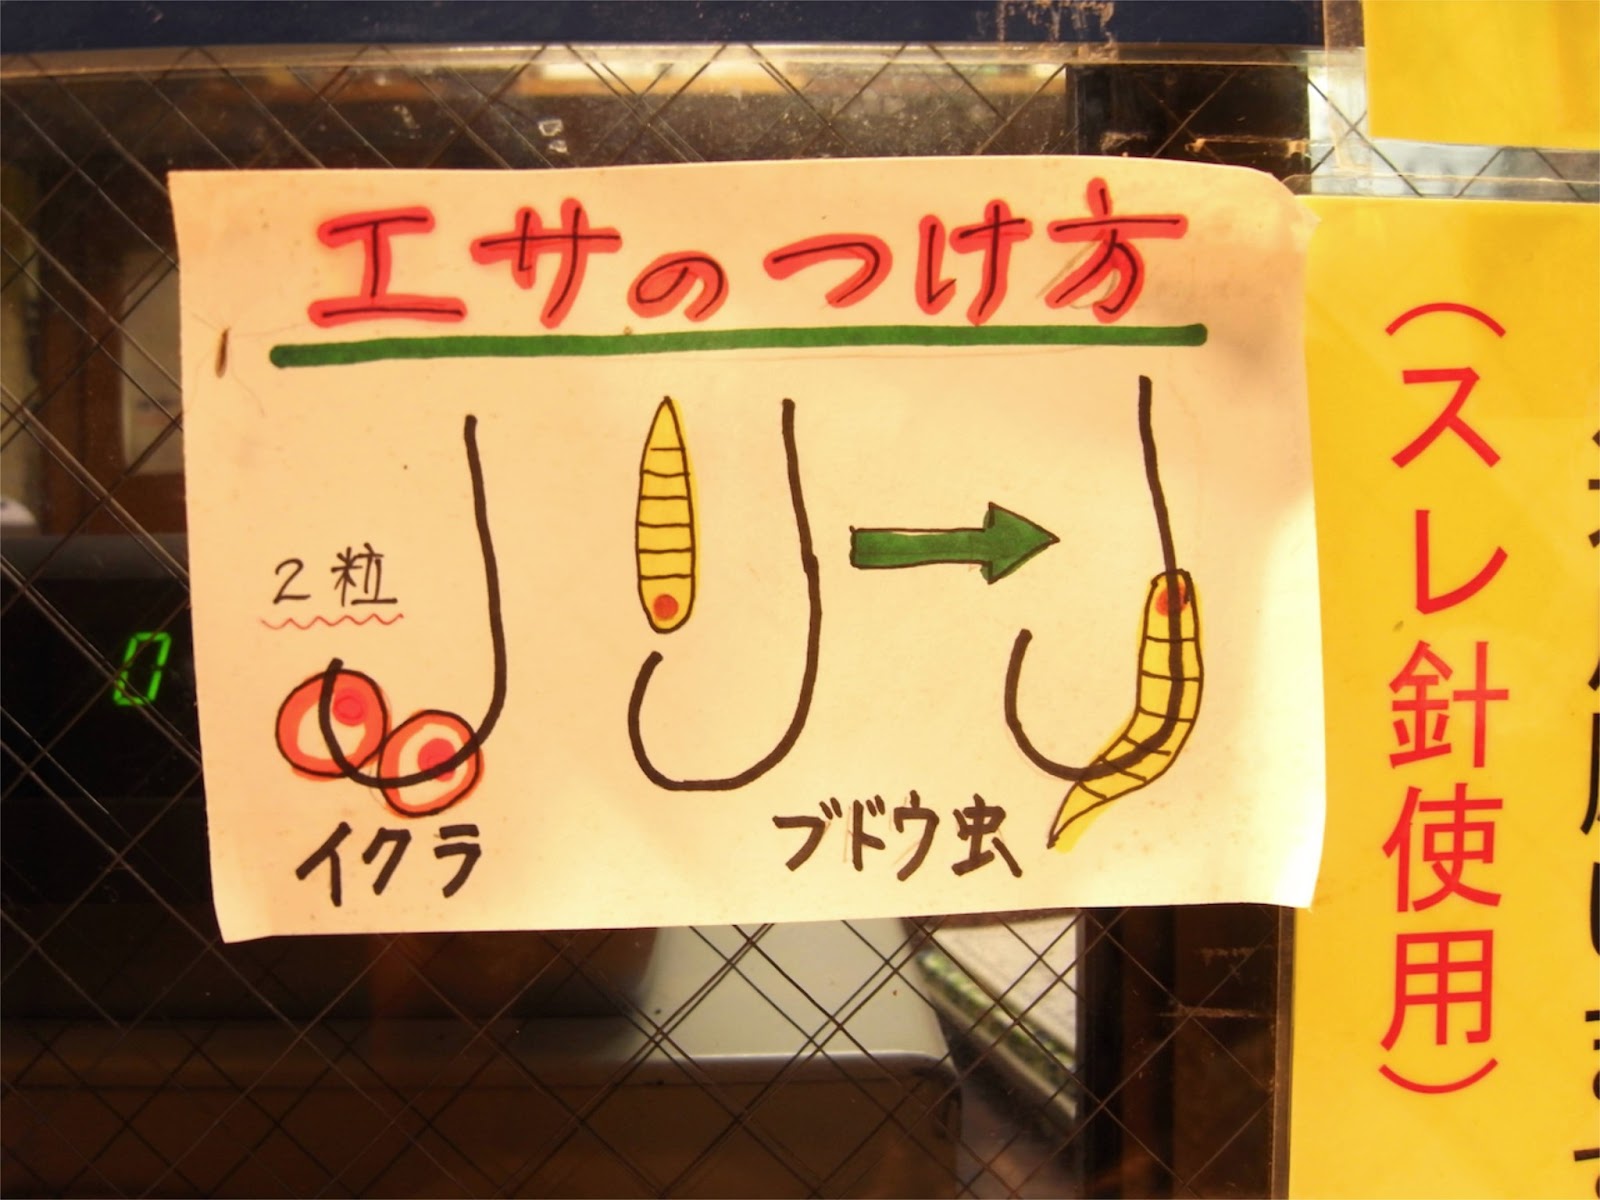 エサのつけ方
2粒
イクラ
ブドウ虫
(スレ針使用)
0